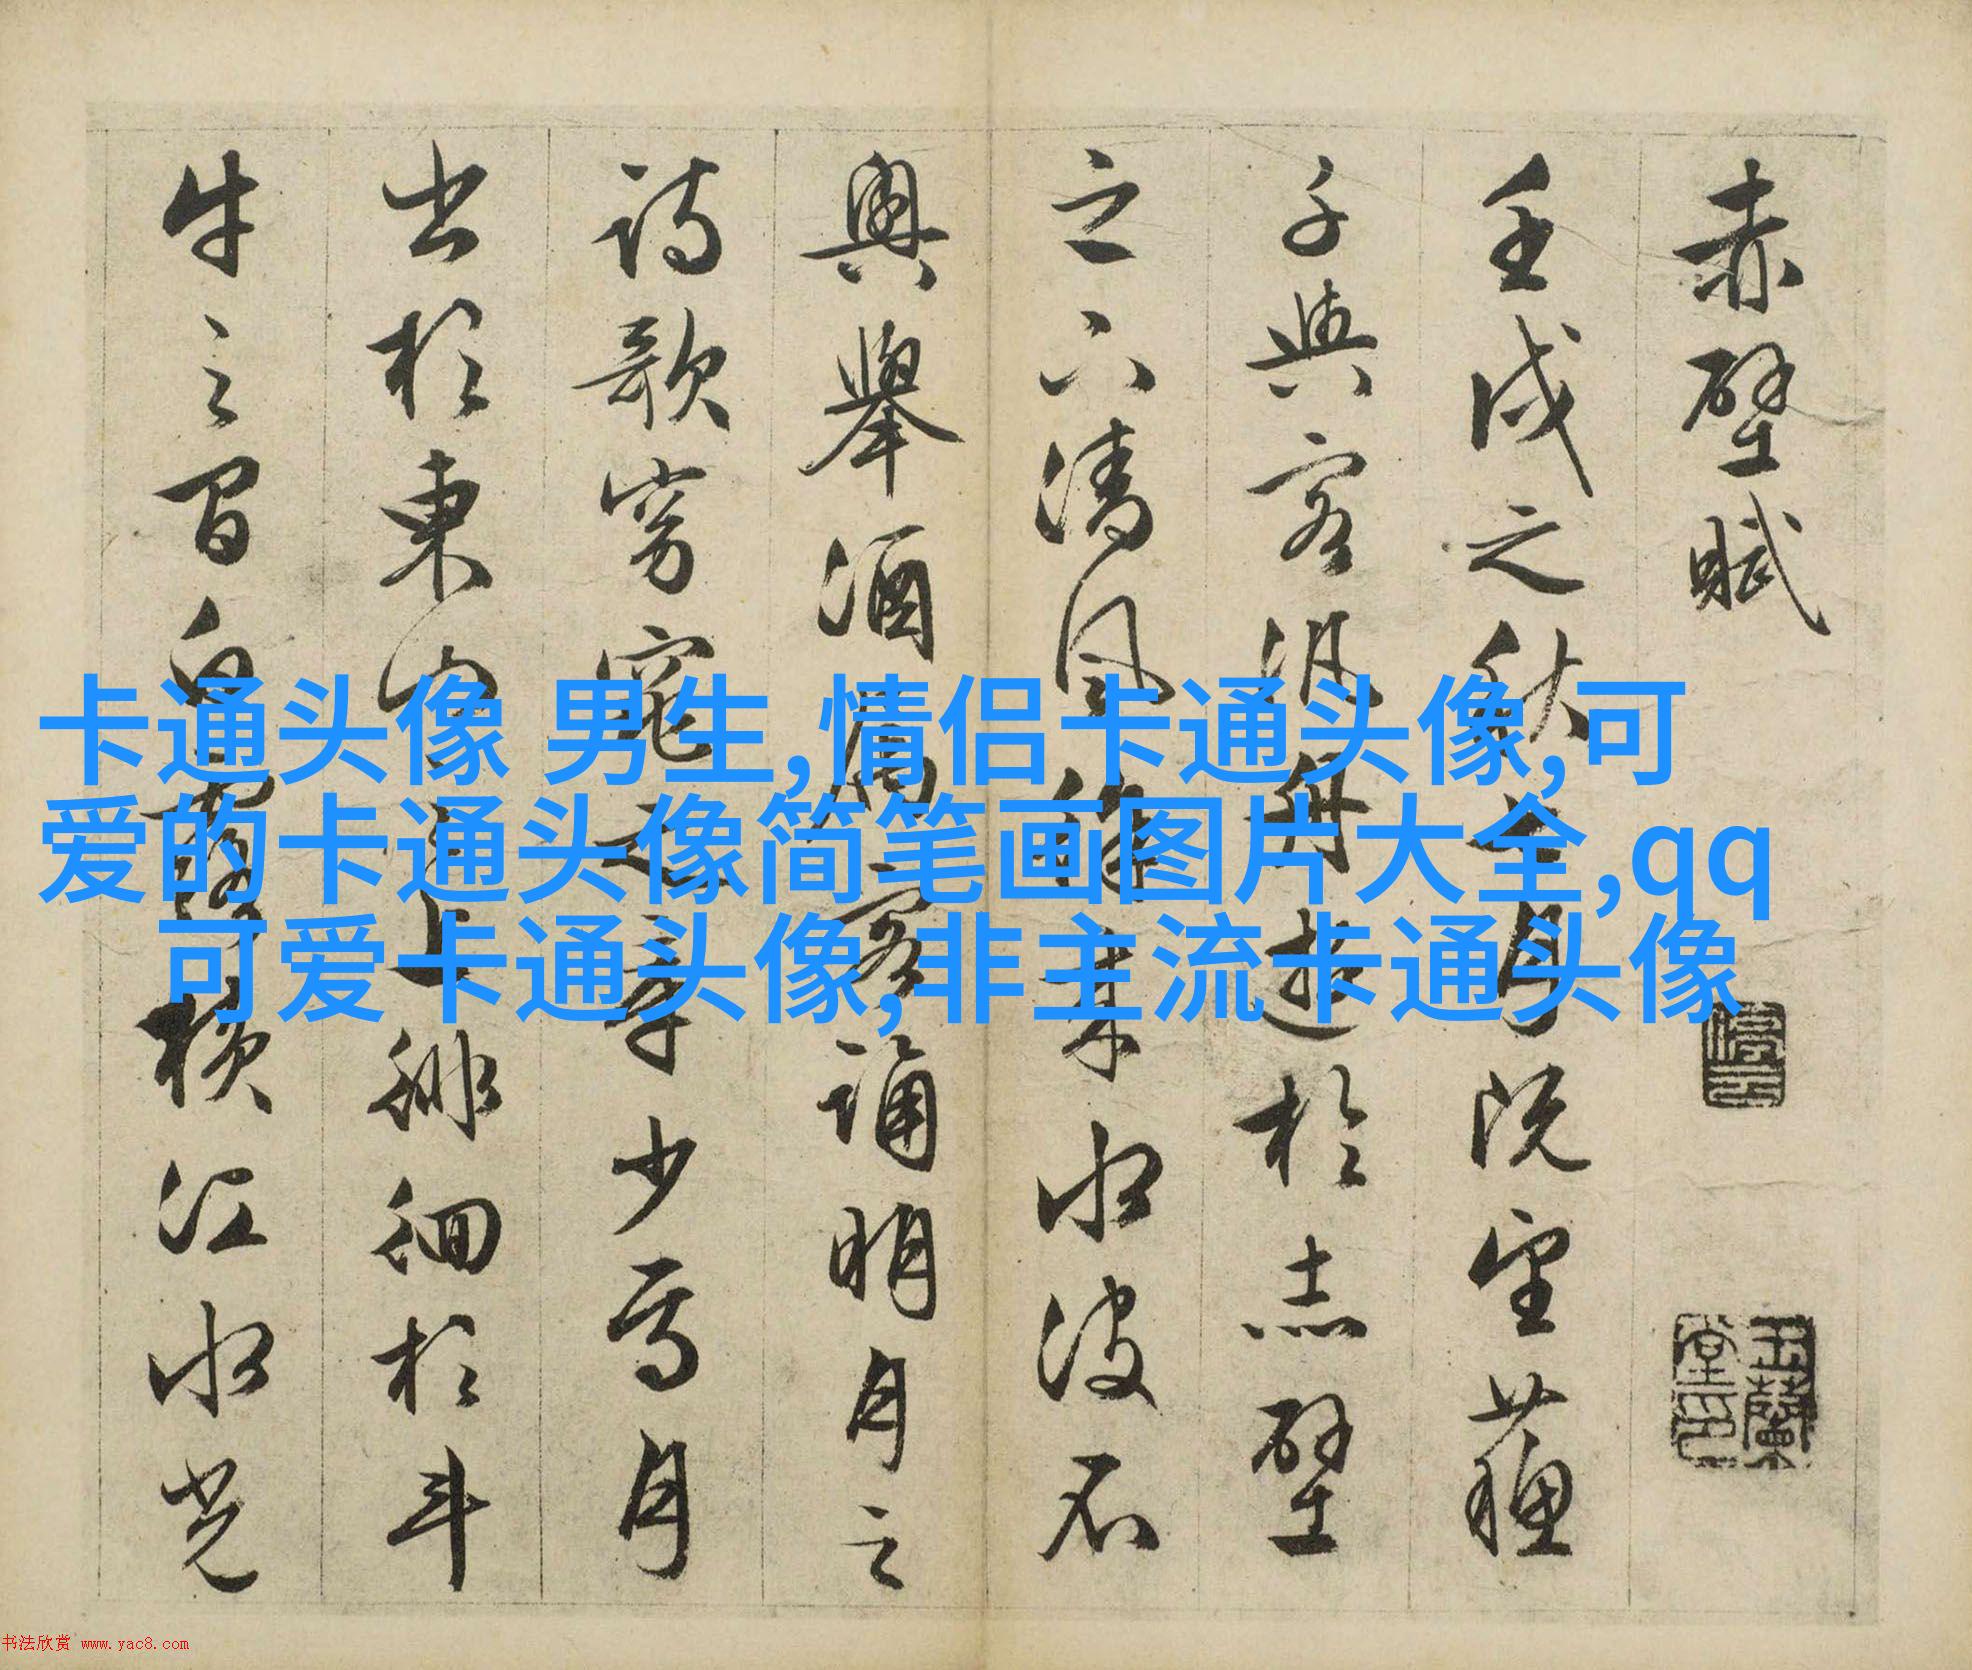 赤壁賦
壬戌之秋七月既望蘓
子與客汎舟遊於赤壁
之下清風徐来水波不
興舉酒屬客誦明月之
詩歌窈窕之章少焉月
出於東山之上徘徊於斗
牛之間白露橫江水光
停雲
玉蘭堂印
卡通头像 男生,情侣卡通头像,可
爱的卡通头像简笔画图片大全,qq
可爱卡通头像,非主流卡通头像
书法欣赏 www.yac8.com